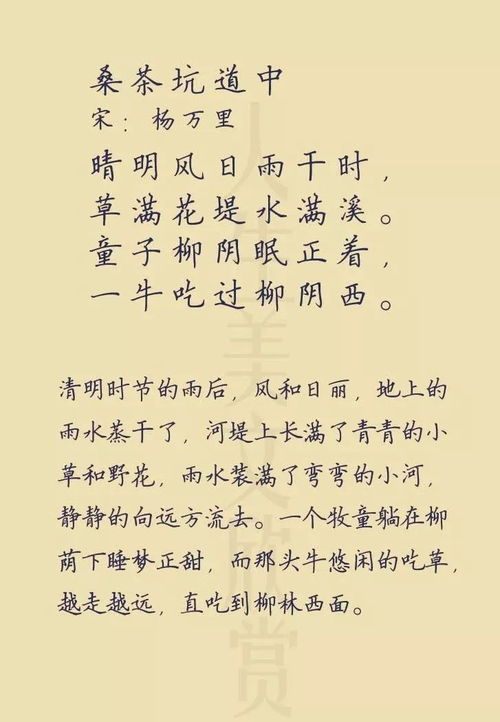 桑茶坑道中
宋：杨万里
晴明风日雨干时，
草满花堤水满溪。
童子柳阴眠正着，
一牛吃过柳阴西。
清明时节的雨后，风和日丽，地上的
雨水蒸干了，河堤上长满了青青的小
草和野花，雨水装满了弯弯的小河，
静静的向远方流去。一个牧童躺在柳
荫下睡梦正甜，而那头牛悠闲的吃草，
越走越远，直吃到柳林西面。
人生美文欣赏